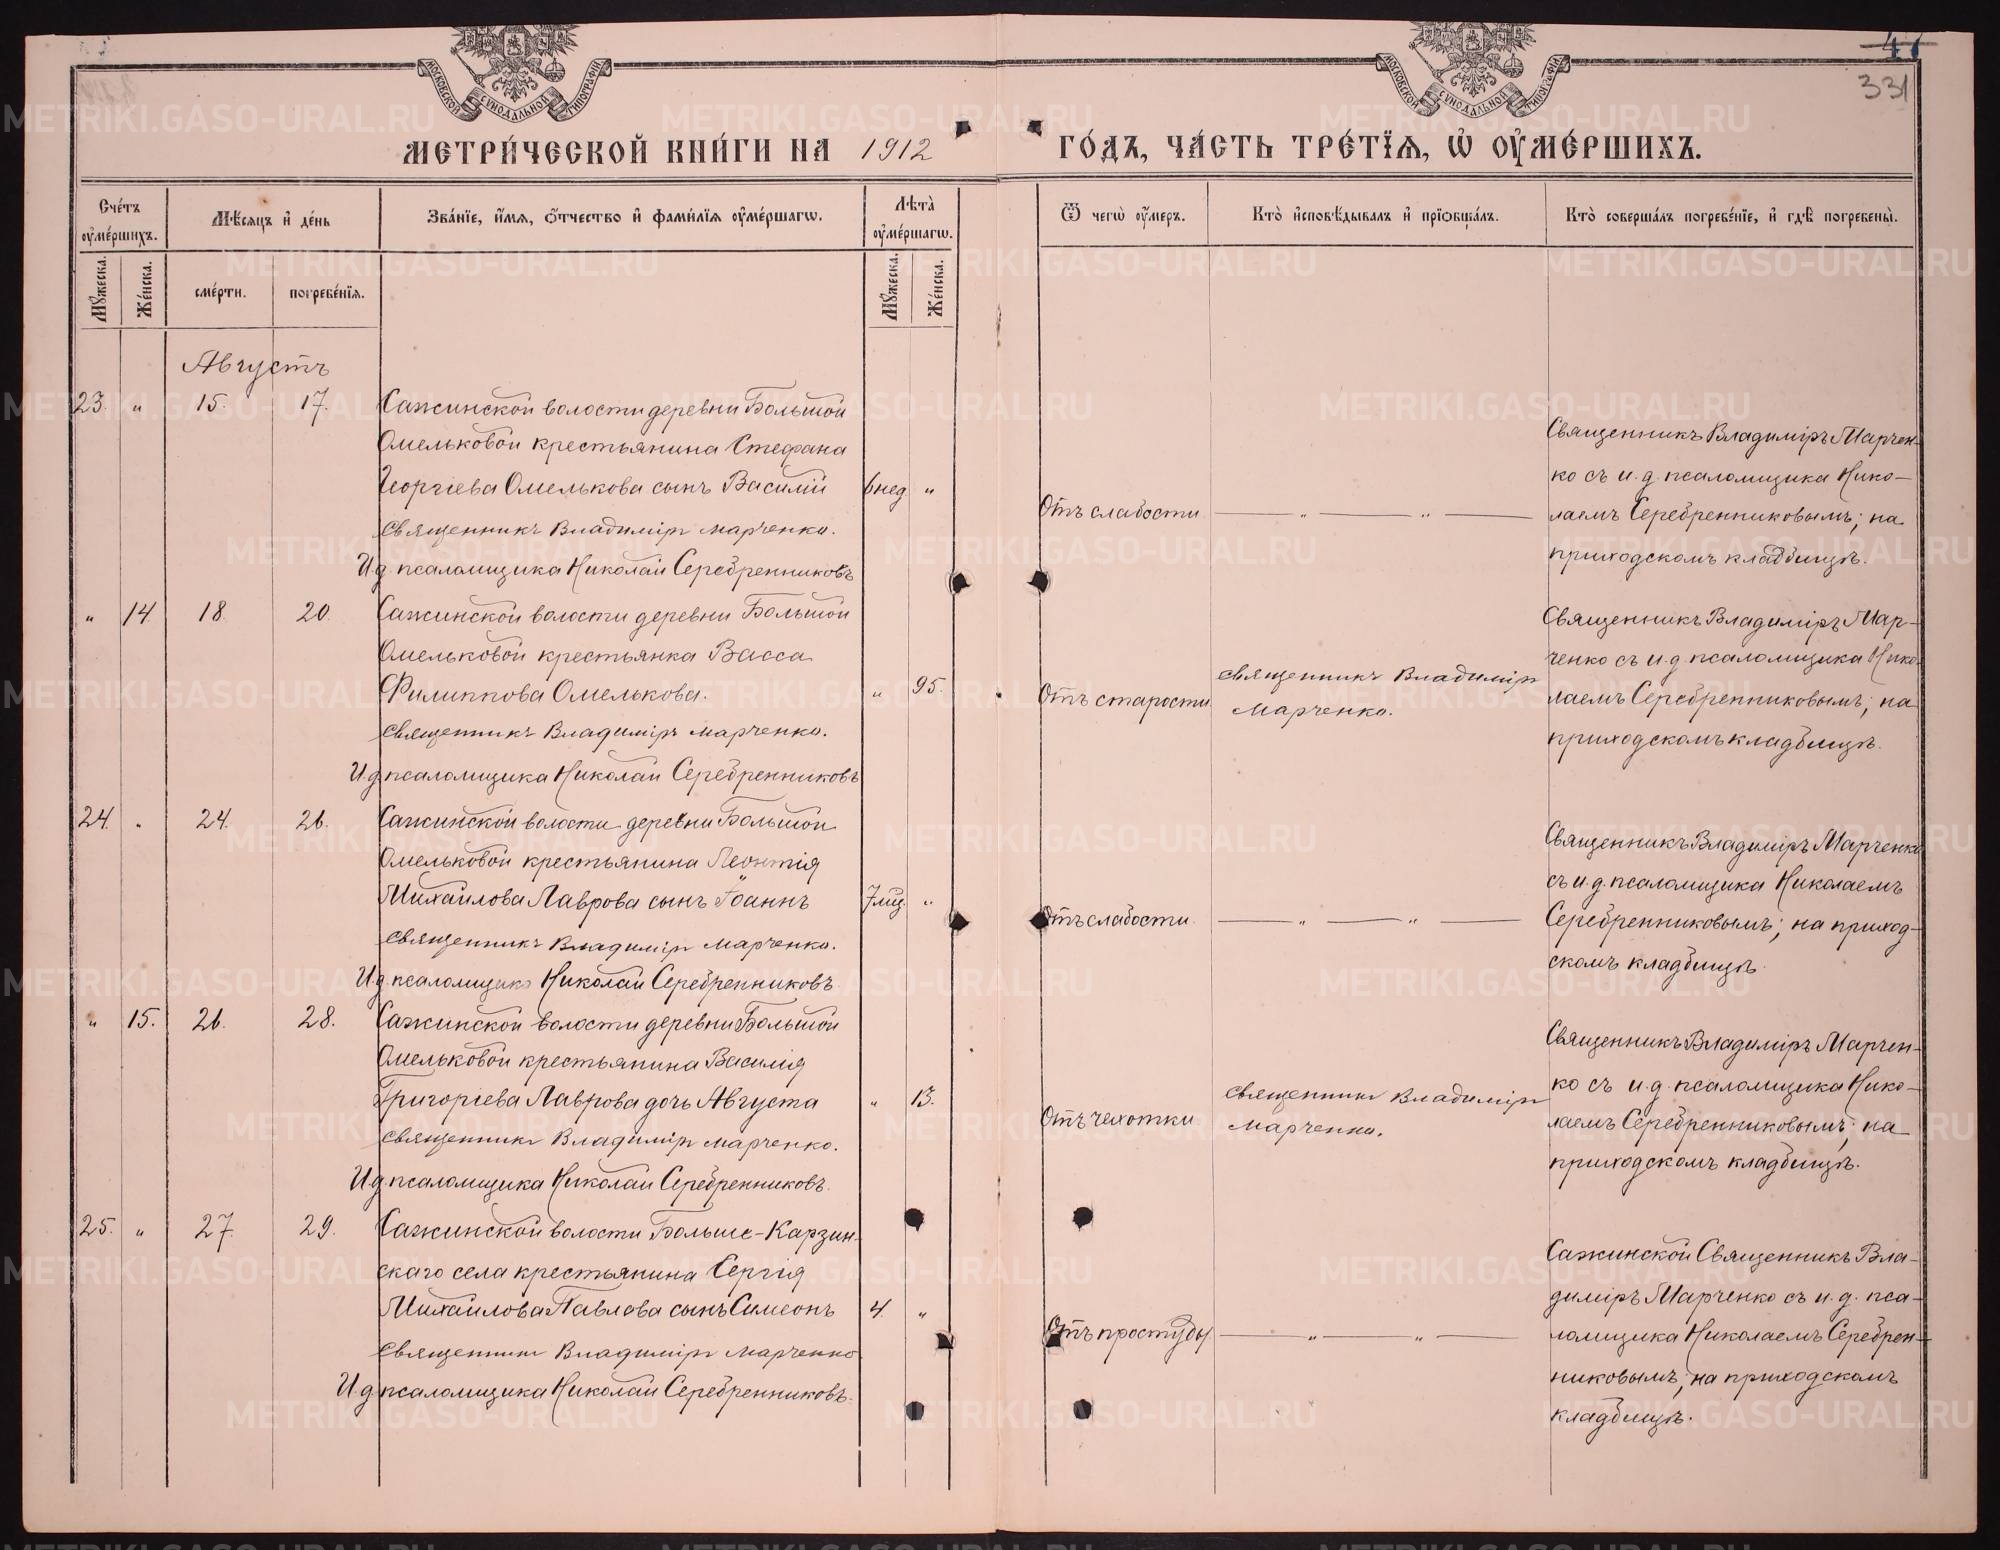 МОСКОВСКОЙ СѴНОДАЛЬНОЙ ТИПОГРАФІИ
МОСКОВСКОЙ СѴНОДАЛЬНОЙ ТИПОГРАФІИ
331
МЕТРИ́ЧЕСКОЙ КНИ́ГИ НА 1912
ГО́ДЪ, ЧА́СТЬ ТРЕ́ТЇѦ, Ѡ҆ ОУ҆МЕ́РШИХЪ.
Сче́тъ оу҆ме́ршихъ.
Мѣ́сѧцъ и҆ де́нь
Зва́нїе, и҆́мѧ, ѻ҆́тчество и҆ фами́лїѧ оу҆ме́ршагѡ.
Лѣ̑та оу҆ме́ршагѡ.
Ѿ чегѡ̀ оу҆́меръ.
Кто̀ и҆сповѣ́дывалъ и҆ прїѡбща́лъ.
Кто̀ соверша́лъ погребе́нїе, и҆ гдѣ̀ погребены̀.
Мꙋ́жеска. Же́нска.
сме́рти. погребе́нїѧ.
Мꙋ́жеска. Же́нска.
Августъ
23. " 15. 17. Сажинской волости деревни Большой
Омельковой крестьянина Стефана
Георгіева Омелькова сынъ Василій 6 нед. "
Священникъ Владиміръ Марченко.
И.д. псаломщика Николай Серебренниковъ
Отъ слабости — " — " —
Священникъ Владиміръ Марчен-
ко съ и.д. псаломщика Нико-
лаемъ Серебренниковымъ; на
приходскомъ кладбищѣ.
" 14. 18. 20. Сажинской волости деревни Большой
Омельковой крестьянка Васса
Филиппова Омелькова. " 95.
Священникъ Владиміръ Марченко.
И.д. псаломщика Николай Серебренниковъ
Отъ старости
Священникъ Владиміръ
Марченко.
Священникъ Владиміръ Мар-
ченко съ и.д. псаломщика Нико-
лаемъ Серебренниковымъ; на
приходскомъ кладбищѣ.
24. " 24. 26. Сажинской волости деревни Большой
Омельковой крестьянина Леонтія
Михайлова Лаврова сынъ Іоаннъ 7 мц. "
Священникъ Владиміръ Марченко.
И.д. псаломщика Николай Серебренниковъ.
Отъ слабости — " — " —
Священникъ Владиміръ Марченко
съ и.д. псаломщика Николаемъ
Серебренниковымъ; на приход-
скомъ кладбищѣ.
" 15. 26. 28. Сажинской волости деревни Большой
Омельковой крестьянина Василія
Григоріева Лаврова дочь Августа " 13.
Священникъ Владиміръ Марченко.
И.д. псаломщика Николай Серебренниковъ.
Отъ чехотки
Священникъ Владиміръ
Марченко.
Священникъ Владиміръ Марчен-
ко съ и.д. псаломщика Нико-
лаемъ Серебренниковымъ; на
приходскомъ кладбищѣ.
25. " 27. 29. Сажинской волости Больше-Карзин-
скаго села крестьянина Сергія
Михайлова Павлова сынъ Симеонъ 4. "
Священникъ Владиміръ Марченко
И.д. псаломщика Николай Серебренниковъ.
Отъ простуды — " — " —
Сажинской Священникъ Вла-
диміръ Марченко съ и.д. пса-
ломщика Николаемъ Серебрен-
никовымъ, на приходскомъ
кладбищѣ.
METRIKI.GASO-URAL.RU